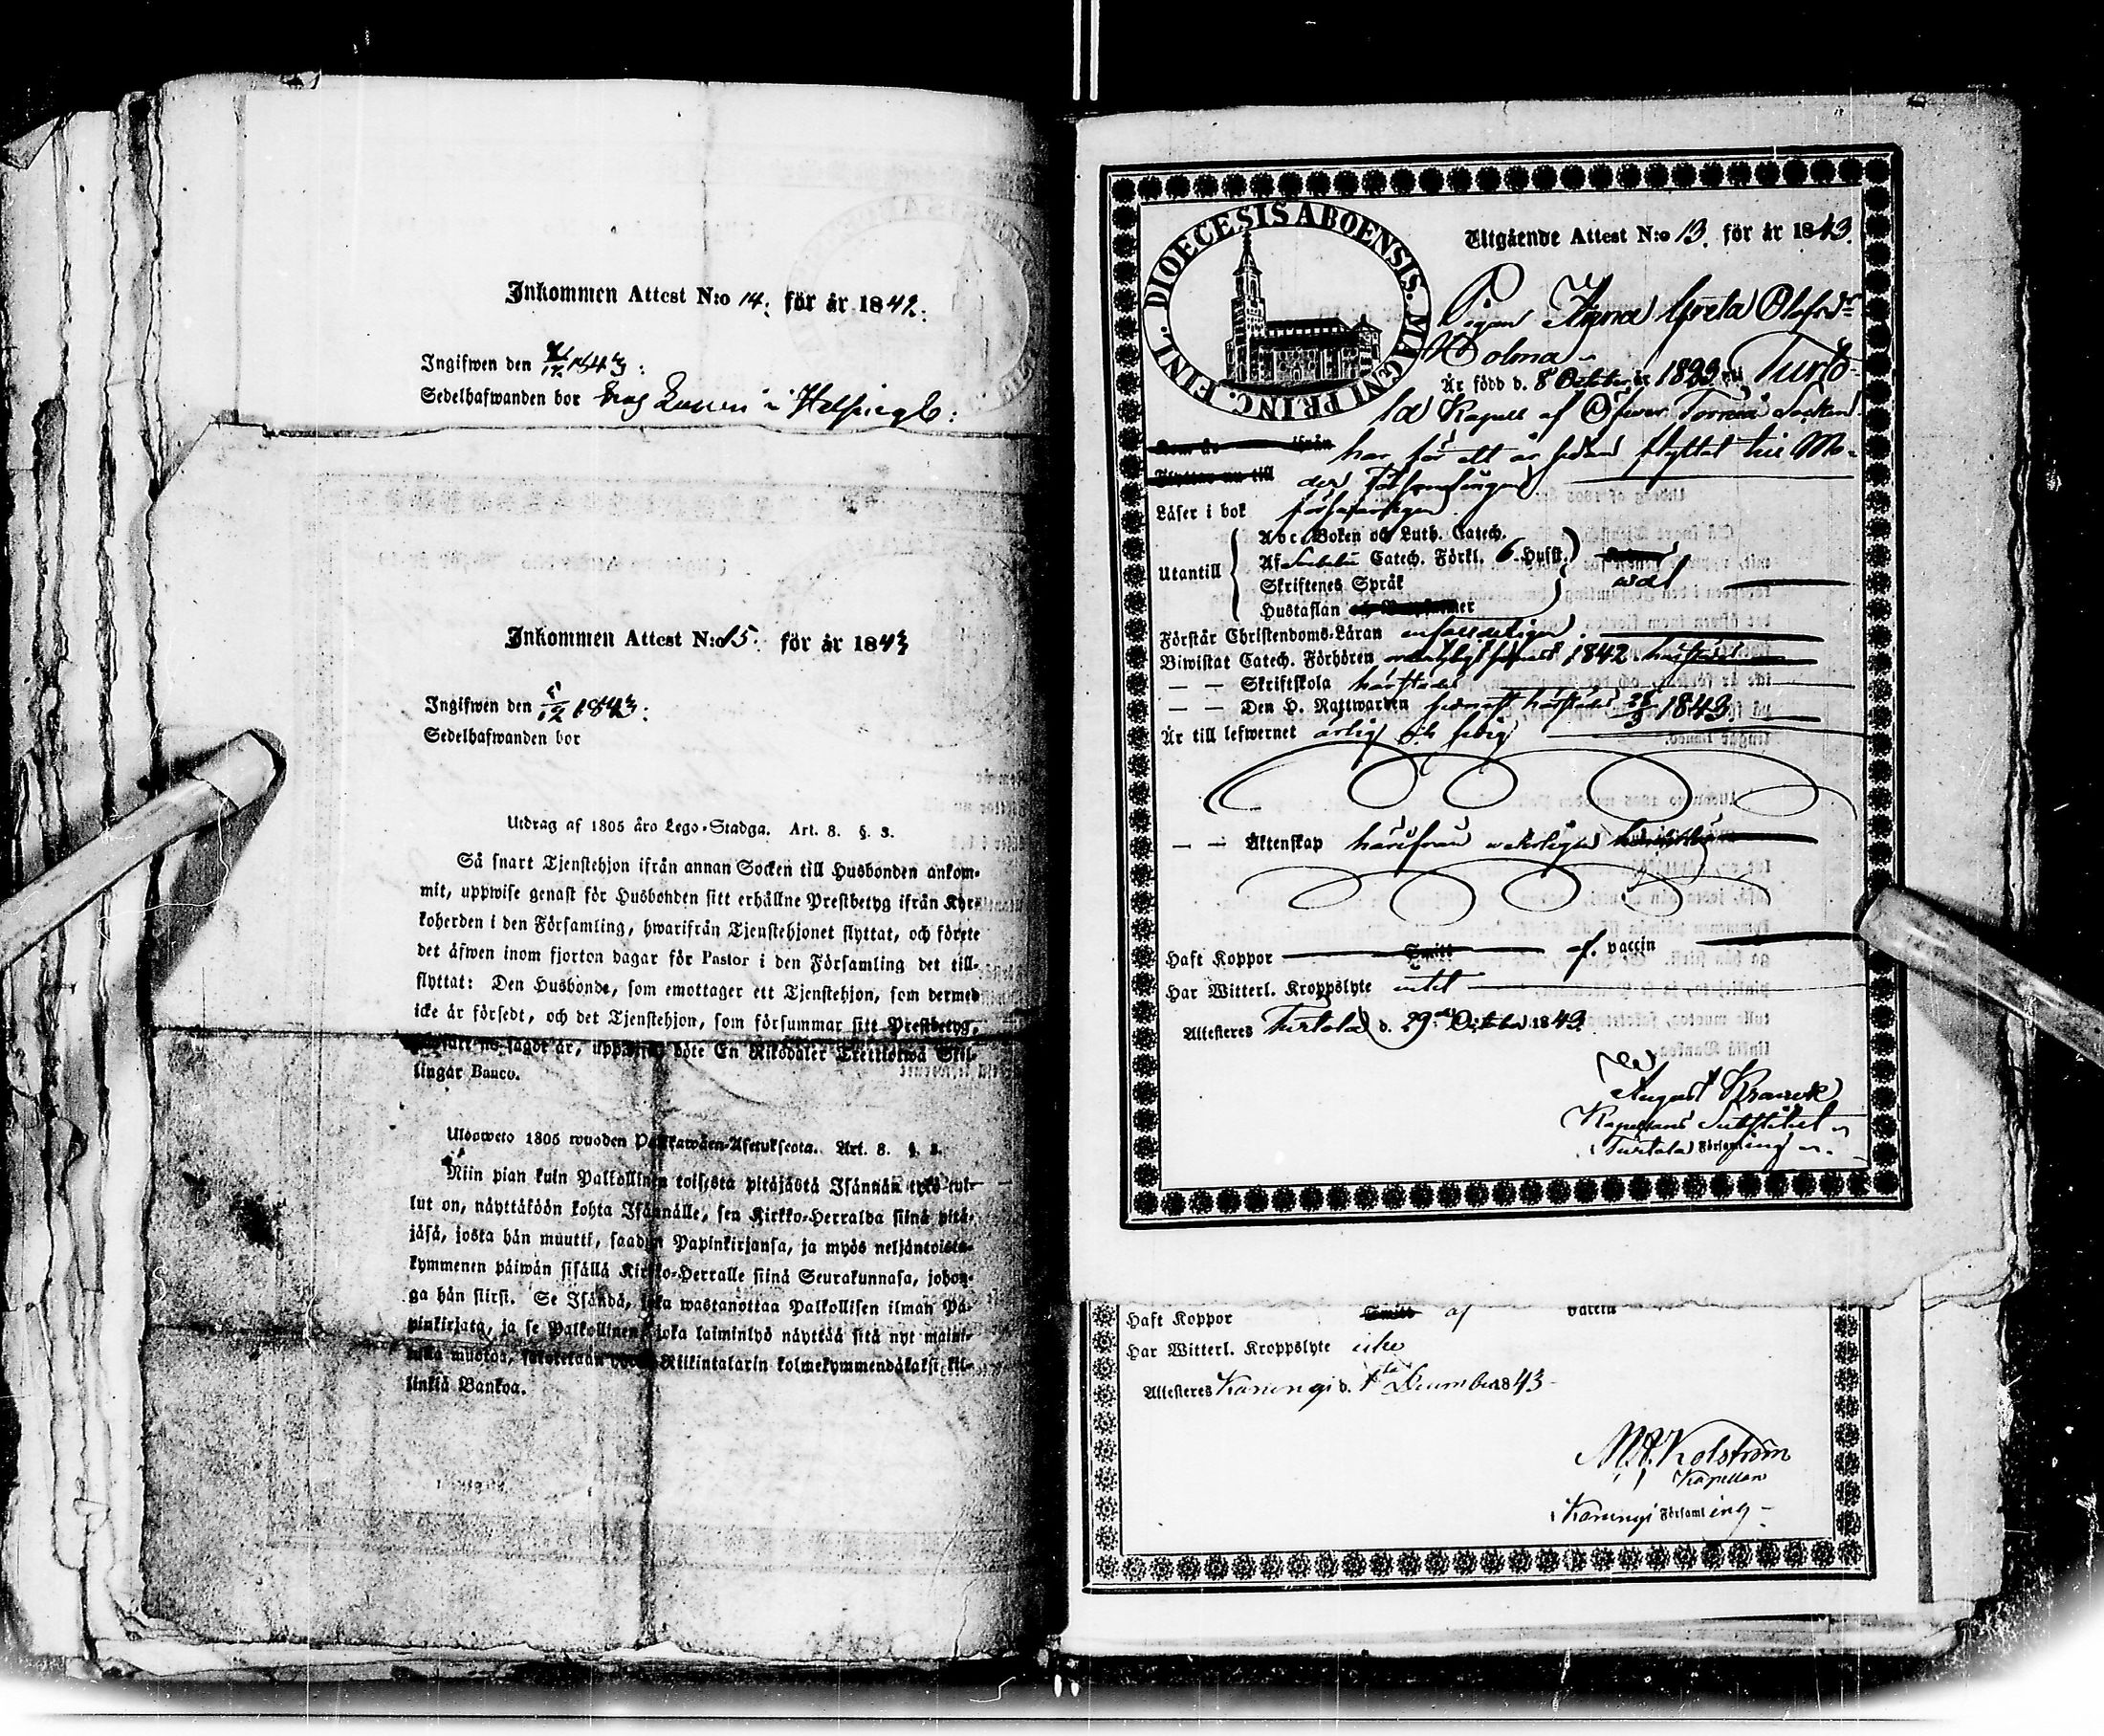 Inkommen Attest N:o 14. för år 1842.
Ingifwen den 1843:
Sedelhafwanden bor hos i
Inkommen Attest N:o 15. för år 1843
Ingifwen den 5/12 1843:
Sedelhafwanden bor
Utdrag af 1805 åro Lego-Stadga. Art. 8. §. 3.
Så snart Tjenstehjon ifrån annan Socken till Husbonden ankom-
mit, uppwise genast för Husbonden sitt erhållne Prestbetyg ifrån Kyr-
koherden i den Församling, hwarifrån Tjenstehjonet flyttat, och förete
det äfwen inom fjorton dagar för Pastor i den Församling det till-
flyttat: Den Husbonde, som emottager ett Tjenstehjon, som dermed
icke är försedt, och det Tjenstehjon, som försummar sitt Prestbetyg,
sagdt är, uppwisa, böte En Riksdaler Trettiotwå Skil-
lingar Banco.
Ulosweto 1805 wuoden Palkkawäen-Asetuksesta. Art. 8. §. 3.
Niin pian kuin Palkollinen toisesta pitäjästä Isännän tykö tul-
lut on, näyttäköön kohta Isännälle, sen Kirkko-Herralda siinä pitä-
jäsä, josta hän muutti, saadun Papinkirjansa, ja myös neljäntoista-
kymmenen päiwän sisällä Kirkko-Herralle siinä Seurakunnasa, johon-
ga hän siirsi. Se Isändä, joka wastanottaa Palkollisen ilman Pa-
pinkirjata, ja se Palkollinen, joka laiminlyö näyttää sitä nyt maini-
tulla muotoa, sakotetaan Riikintalarin kolmekymmendäkaksi kil-
linkiä Bankoa.
DIOECESIS ABOENSIS. MAGNI PRINC. FINL.
Utgående Attest N:o 13. för år 1843.
Pigan Anna Greta Olofsdr
Kolma
Är född d. 8 October år 1823 uti Turto-
la Kapell af Öfver Torneå Socken.
har för ett år sedan flyttat till Mo-
der Församlingen
Läser i bok försvarligen
Utantill
Abc-Boken och Luth. Catech.
Af Catech. Förkl. 6 Husst.
Skriftenes Språk
Hustaflan
Förstår Christendoms-Läran
Biwistat Catech. Förhören 1842
— — Skriftskola härstädes
— — Den H. Nattwarden härstädes 1843
Är till lefwernet ärlig och sedig
— — Äktenskap härifrån
Haft Koppor af vaccin
Har Witterl. Kroppslyte intet
Attesteres Turtola d. 29 October 1843.
August
Kapellans Substitut
i Turtola Församling
Haft Koppor Smitt af vaccin
Har Witterl. Kroppslyte icke
Attesteres Karungi d. 1 December 1843
Kolström
Kapellan
i Karungi Församling